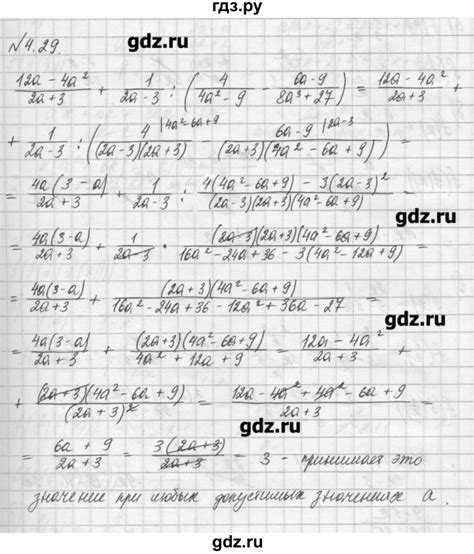 гдз.ру
№4.29.
(12a − 4a²)/(2a+3) + 1/(2a−3) : (4/(4a²−9) − (6a−9)/(8a³+27)) = (12a − 4a²)/(2a+3) +
+ 1/(2a−3) : (4 |4a²−6a+9/((2a−3)(2a+3)) − (6a−9) |2a−3/((2a+3)(4a²−6a+9))) =
= 4a(3−a)/(2a+3) + 1/(2a−3) : (4(4a²−6a+9) − 3(2a−3)²)/((2a−3)(2a+3)(4a²−6a+9)) =
= 4a(3−a)/(2a+3) + 1/(2a−3) · (2a−3)(2a+3)(4a²−6a+9)/(16a²−24a+36−3(4a²−12a+9)) =
= 4a(3−a)/(2a+3) + (2a+3)(4a²−6a+9)/(16a²−24a+36−12a²+36a−27) =
= 4a(3−a)/(2a+3) + (2a+3)(4a²−6a+9)/(4a²+12a+9) = (12a−4a²)/(2a+3) +
+ (2a+3)(4a²−6a+9)/(2a+3)² = (12a−4a²+4a²−6a+9)/(2a+3) =
= (6a+9)/(2a+3) = 3(2a+3)/(2a+3) = 3 - принимает это
значение при любых допустимых значениях a.
gdz.ru
gdz.ru
gdz.ru
gdz.ru
gdz.ru
gdz.ru
гдз.ру